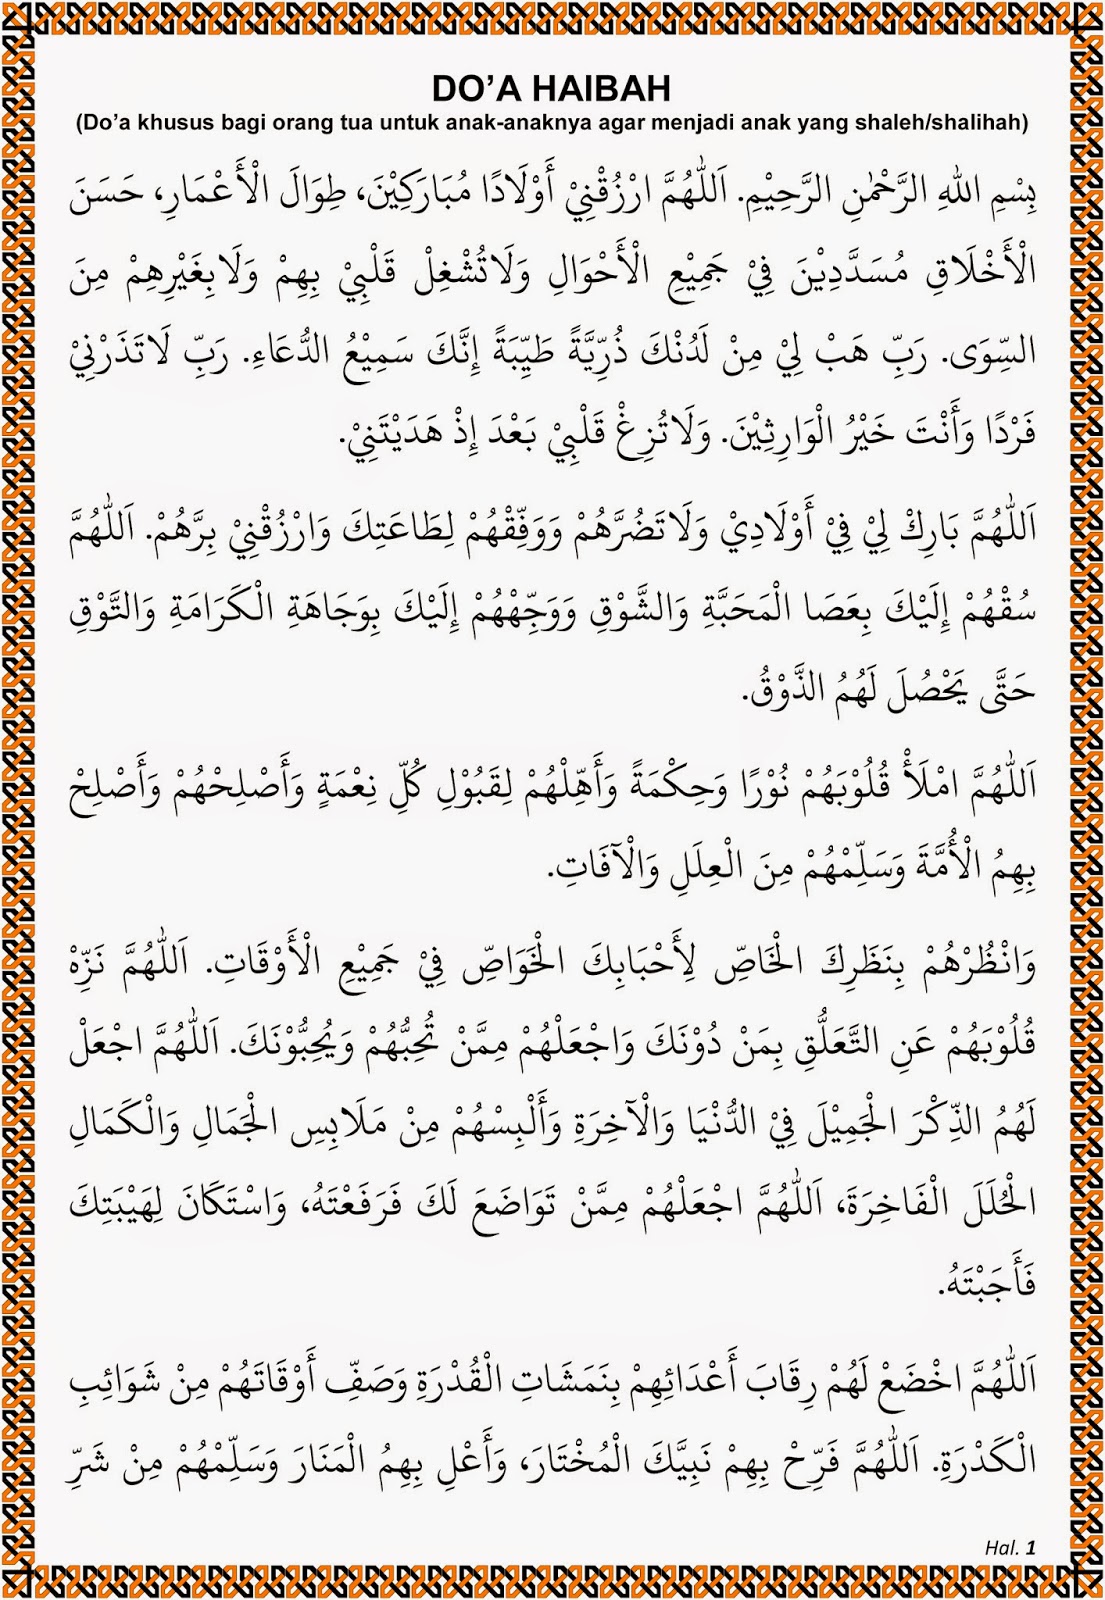 DO’A HAIBAH
(Do’a khusus bagi orang tua untuk anak-anaknya agar menjadi anak yang shaleh/shalihah)
بِسْمِ اللهِ الرَّحْمٰنِ الرَّحِيْمِ. اَللّٰهُمَّ ارْزُقْنِيْ أَوْلَادًا مُبَارَكِيْنَ، طِوَالَ الْأَعْمَارِ، حَسَنَ
الْأَخْلَاقِ مُسَدَّدِيْنَ فِيْ جَمِيْعِ الْأَحْوَالِ وَلَاتُشْغِلْ قَلْبِيْ بِهِمْ وَلَابِغَيْرِهِمْ مِنَ
السِّوَى. رَبِّ هَبْ لِيْ مِنْ لَدُنْكَ ذُرِّيَّةً طَيِّبَةً إِنَّكَ سَمِيْعُ الدُّعَاءِ. رَبِّ لَاتَذَرْنِيْ
فَرْدًا وَأَنْتَ خَيْرُ الْوَارِثِيْنَ. وَلَاتُزِغْ قَلْبِيْ بَعْدَ إِذْ هَدَيْتَنِيْ.
اَللّٰهُمَّ بَارِكْ لِيْ فِيْ أَوْلَادِيْ وَلَاتَضُرَّهُمْ وَوَفِّقْهُمْ لِطَاعَتِكَ وَارْزُقْنِيْ بِرَّهُمْ. اَللّٰهُمَّ
سُقْهُمْ إِلَيْكَ بِعَصَا الْمَحَبَّةِ وَالشَّوْقِ وَوَجِّهْهُمْ إِلَيْكَ بِوَجَاهَةِ الْكَرَامَةِ وَالتَّوْقِ
حَتَّى يَحْصُلَ لَهُمُ الذَّوْقُ.
اَللّٰهُمَّ امْلَأْ قُلُوْبَهُمْ نُوْرًا وَحِكْمَةً وَأَهِّلْهُمْ لِقَبُوْلِ كُلِّ نِعْمَةٍ وَأَصْلِحْهُمْ وَأَصْلِحْ
بِهِمُ الْأُمَّةَ وَسَلِّمْهُمْ مِنَ الْعِلَلِ وَالْآفَاتِ.
وَانْظُرْهُمْ بِنَظَرِكَ الْخَاصِّ لِأَحْبَابِكَ الْخَوَاصِّ فِيْ جَمِيْعِ الْأَوْقَاتِ. اَللّٰهُمَّ نَزِّهْ
قُلُوْبَهُمْ عَنِ التَّعَلُّقِ بِمَنْ دُوْنَكَ وَاجْعَلْهُمْ مِمَّنْ تُحِبُّهُمْ وَيُحِبُّوْنَكَ. اَللّٰهُمَّ اجْعَلْ
لَهُمُ الذِّكْرَ الْجَمِيْلَ فِيْ الدُّنْيَا وَالْآخِرَةِ وَأَلْبِسْهُمْ مِنْ مَلَابِسِ الْجَمَالِ وَالْكَمَالِ
الْحُلَلَ الْفَاخِرَةَ، اَللّٰهُمَّ اجْعَلْهُمْ مِمَّنْ تَوَاضَعَ لَكَ فَرَفَعْتَهُ، وَاسْتَكَانَ لِهَيْبَتِكَ
فَأَجَبْتَهُ.
اَللّٰهُمَّ اخْضَعْ لَهُمْ رِقَابَ أَعْدَائِهِمْ بِنَمَشَاتِ الْقُدْرَةِ وَصَفِّ أَوْقَاتَهُمْ مِنْ شَوَائِبِ
الْكَدْرَةِ. اَللّٰهُمَّ فَرِّحْ بِهِمْ نَبِيَّكَ الْمُخْتَارَ، وَأَعْلِ بِهِمُ الْمَنَارَ وَسَلِّمْهُمْ مِنْ شَرِّ
Hal. 1